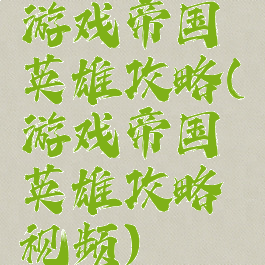 游戏帝国
英雄攻略(
游戏帝国
英雄攻略
视频)